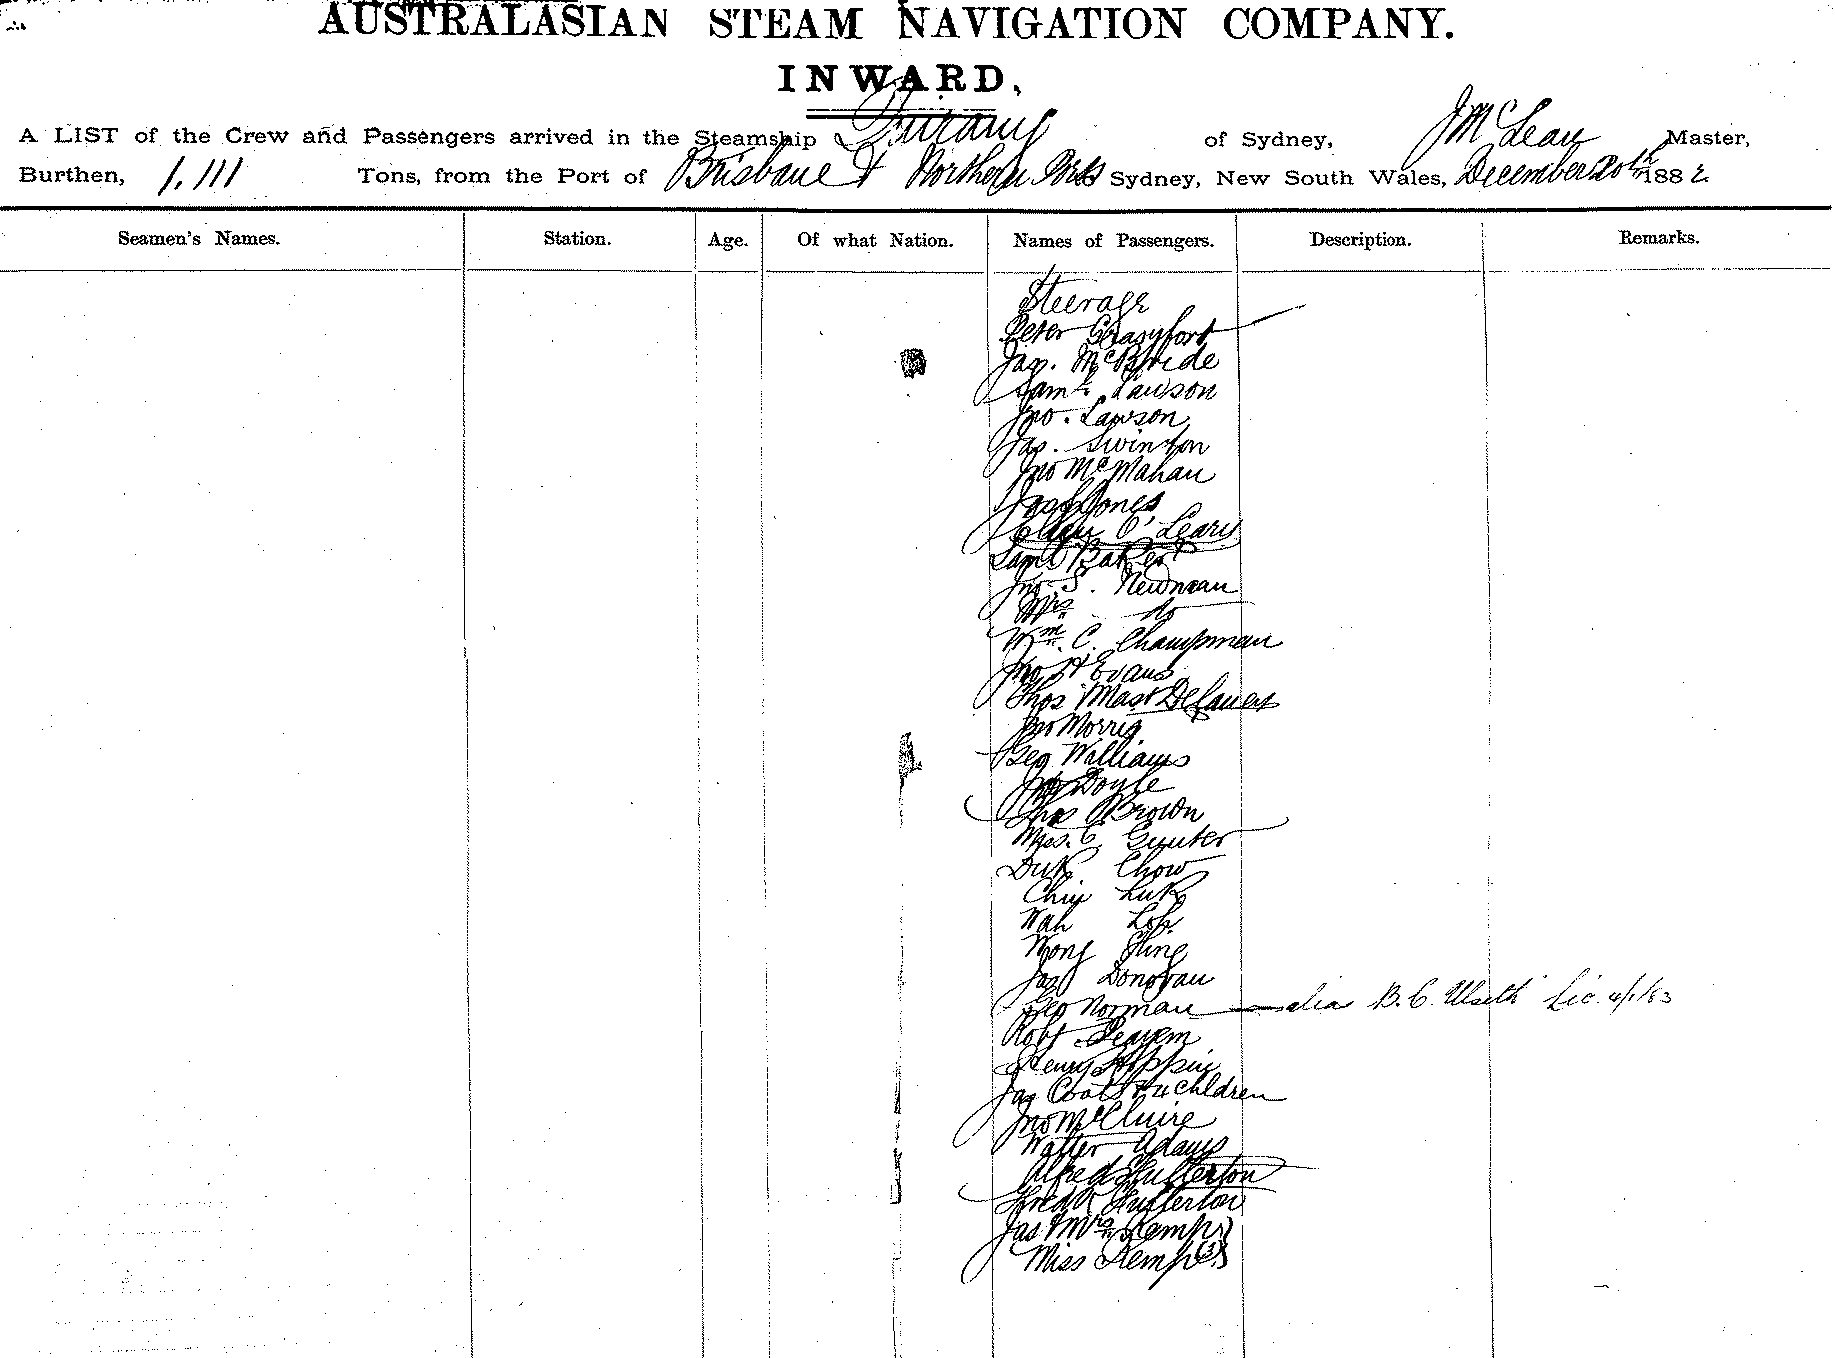 AUSTRALASIAN STEAM NAVIGATION COMPANY.
INWARD,
A LIST of the Crew and Passengers arrived in the Steamship of Sydney, J McLean Master,
Burthen, 1.111 Tons, from the Port of Brisbane & Northern Ports to Sydney, New South Wales, December 20th 1882
Seamen's Names. Station. Age. Of what Nation. Names of Passengers. Description. Remarks.
Steerage
Peter
Jas. McBride
Saml Lawson
Jno. Lawson
Jas. Swinton
Jno McMahan
Jas Jones
O'Leary
Saml Baker
Jno. S. Newman
Mrs do
Wm. C. Champman
Jno H Evans
Thos
Jno Morris
Geo Williams
Doyle
Thos Brown
Mrs. C. Gunter
Duk Chow
Chin Luk
Wah
Wong
Jas Donovan
Geo Norman B. C. Lic 4/1/83
Robt
Henry
Jas Coats & 4 Children
Jno McCluire
Walter Adams
Alfred Fullerton
Fredk Fullerton
Jas & Mrs Kemp
Miss Kemp (3)